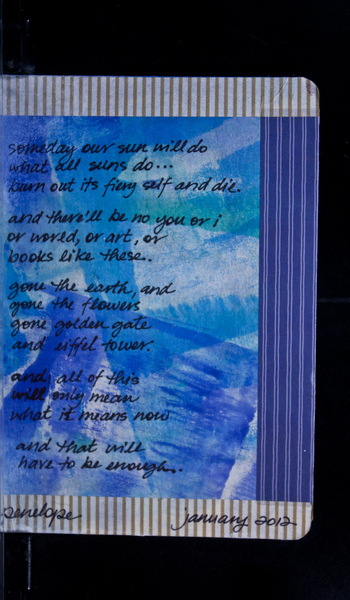 someday our sun will do
what all suns do...
burn out its fiery self and die.
and there'll be no you or i
or world, or art, or
books like these.
gone the earth, and
gone the flowers
gone golden gate
and eiffel tower.
and all of this
will only mean
what it means now
and that will
have to be enough.
penelope january 2012